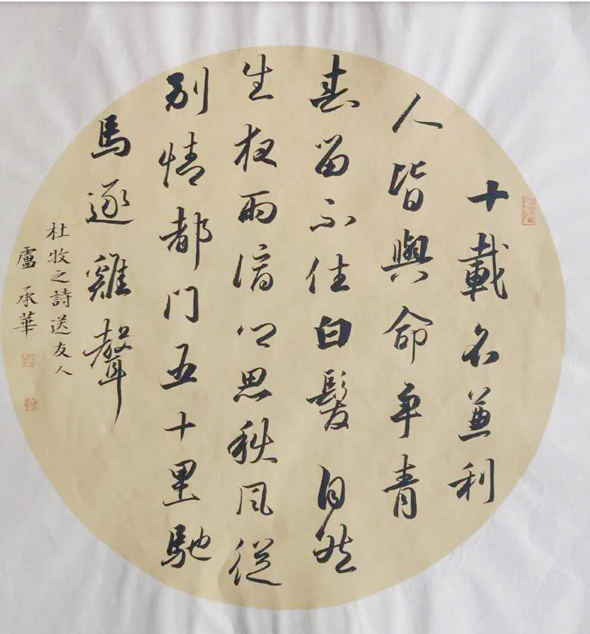 十載名兼利
人皆與命争青
春留不住白髮自然
生夜雨滴鄉思秋风從
別情都门五十里馳
馬逐雞聲
杜牧之詩送友人
盧承華